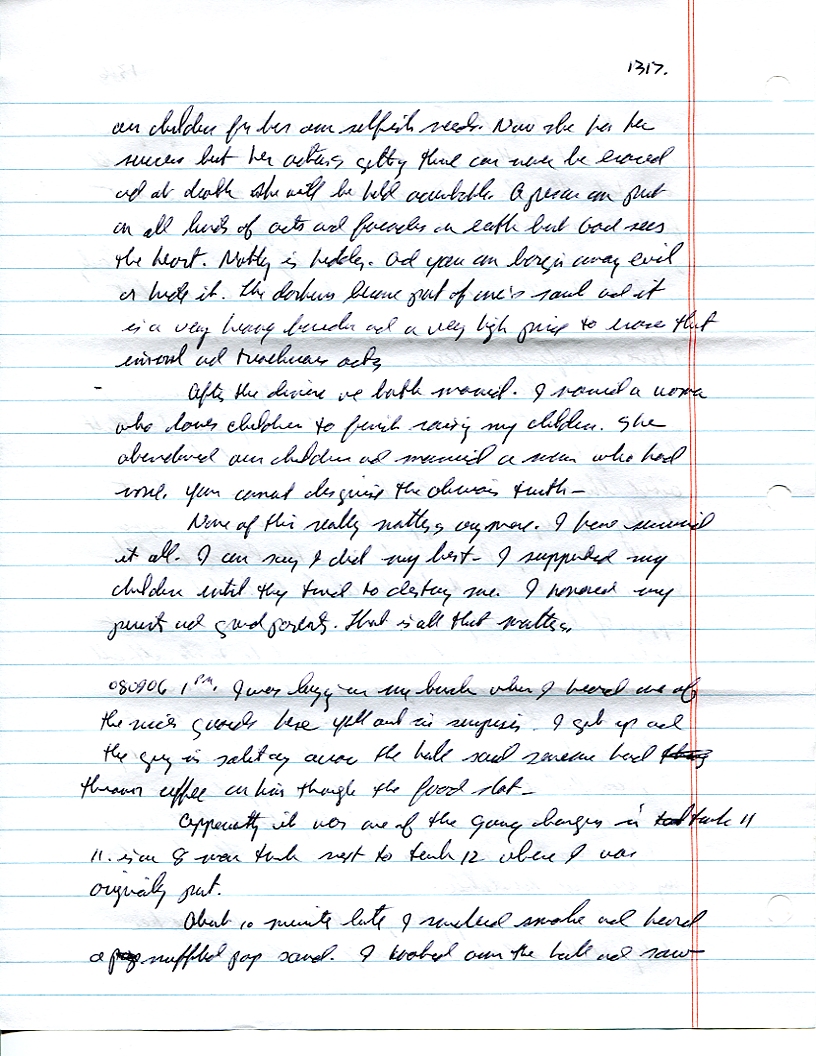 1317.
our children for her own selfish needs. Now she has her
success but her actions getting there can never be erased
and at death she will be held accountable. A person can put
on all kinds of acts and facades on earth but God sees
the heart. Nothing is hidden. And you can bargin away evil
or hide it. The darkness became part of one's soul and it
is a very heavy burden and a very high price to erase that
immoral and treacherous acts
After the divorce we both married. I married a woman
who loves children to finish raising my children. She
abandoned our children and married a man who had
none. You cannot disguise the obvious truth-
None of this really matters anymore. I have survived
it all. I can say I did my best- I supported my
children until they tried to destroy me. I honored my
parents and grandparents. That is all that matters.
080906 1 PM. I was laying on my bunk when I heard one of
the nicer guards here yell out in surprise. I got up and
the guy in solitary across the hall said someone had
thrown coffee on him through the food slot-
Apparently it was one of the gang bangers in tank 11
11 is an 8 man tank next to tank 12 where I was
originally put.
About 10 minute late I smelled smoke and heard
a muffled pop sound. I looked across the hall and saw